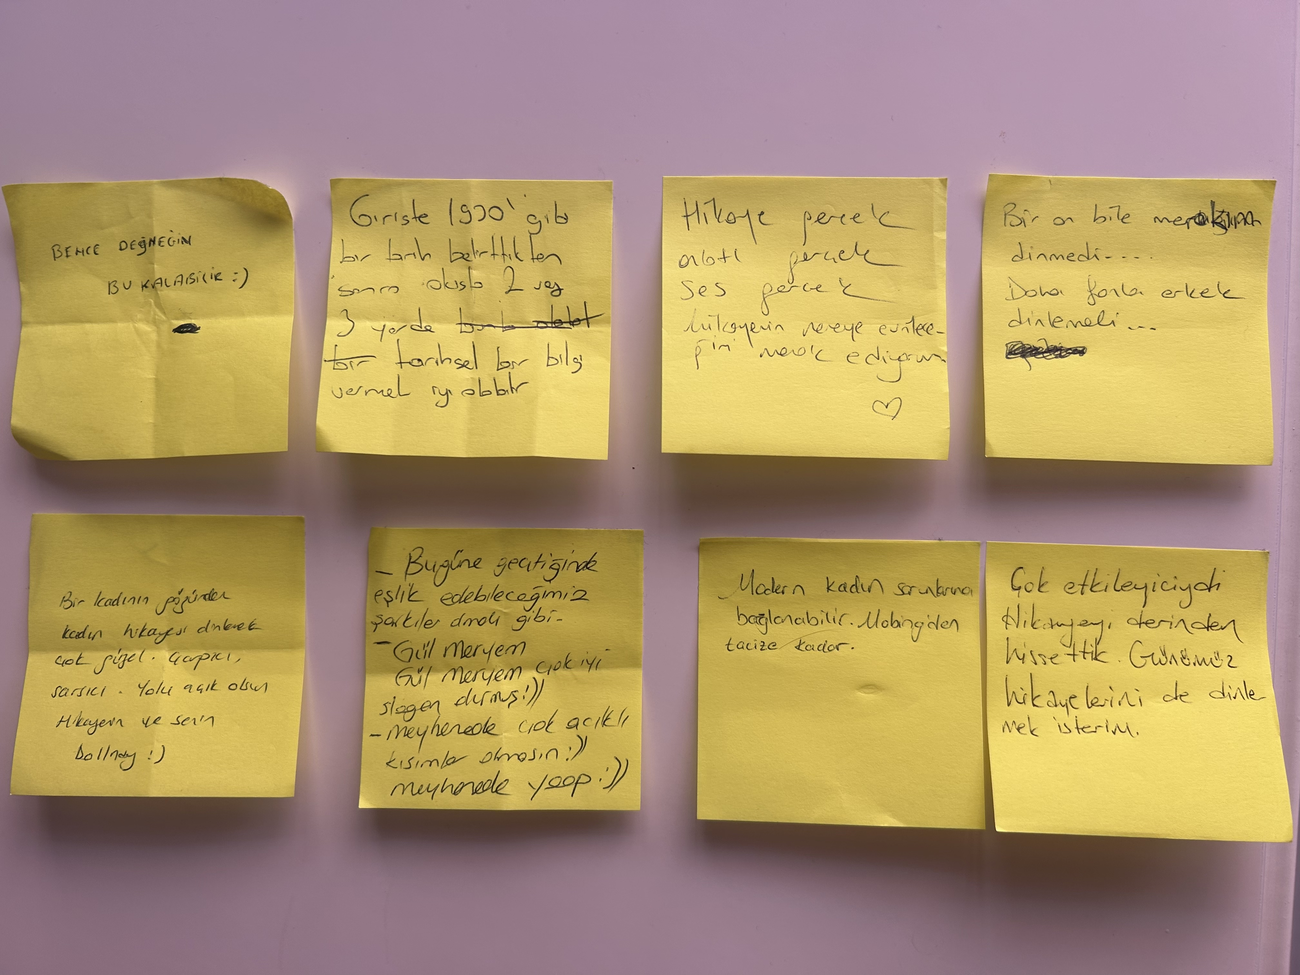 BENCE DEĞNEĞİN
BU KALABİLİR :)
Girişte 1900' gibi
bir tarih belirttikten
sonra akışta 2 veya
3 yerde
tarihsel bir bilgi
vermek iyi olabilir
Hikaye gerçek
anlatı gerçek
ses gerçek
hikayenin nereye evrilece-
ğini merak ediyorum
♡
Bir an bile merakım
dinmedi....
Daha fazla erkek
dinlemeli...
Bir kadının gözünden
kadın hikayesi dinlemek
çok güzel. Çarpıcı,
sarsıcı. Yolu açık olsun
Hikayenin ve senin
:)
- Bugüne geçtiğinde
eşlik edebileceğimiz
şarkılar olmalı gibi-
- Gül Meryem
Gül Meryem çok iyi
slogen durmuş:))
- Meyhenede çok açıklı
kısımlar olmasın:))
meyhenede yaap:))
Modern kadın sorunlarına
bağlanabilir. Mobing'den
tacize kadar.
Çok etkileyiciydi
Hikayeyi derinden
hissettik. Günümüz
hikayelerini de dinle-
mek isterim.